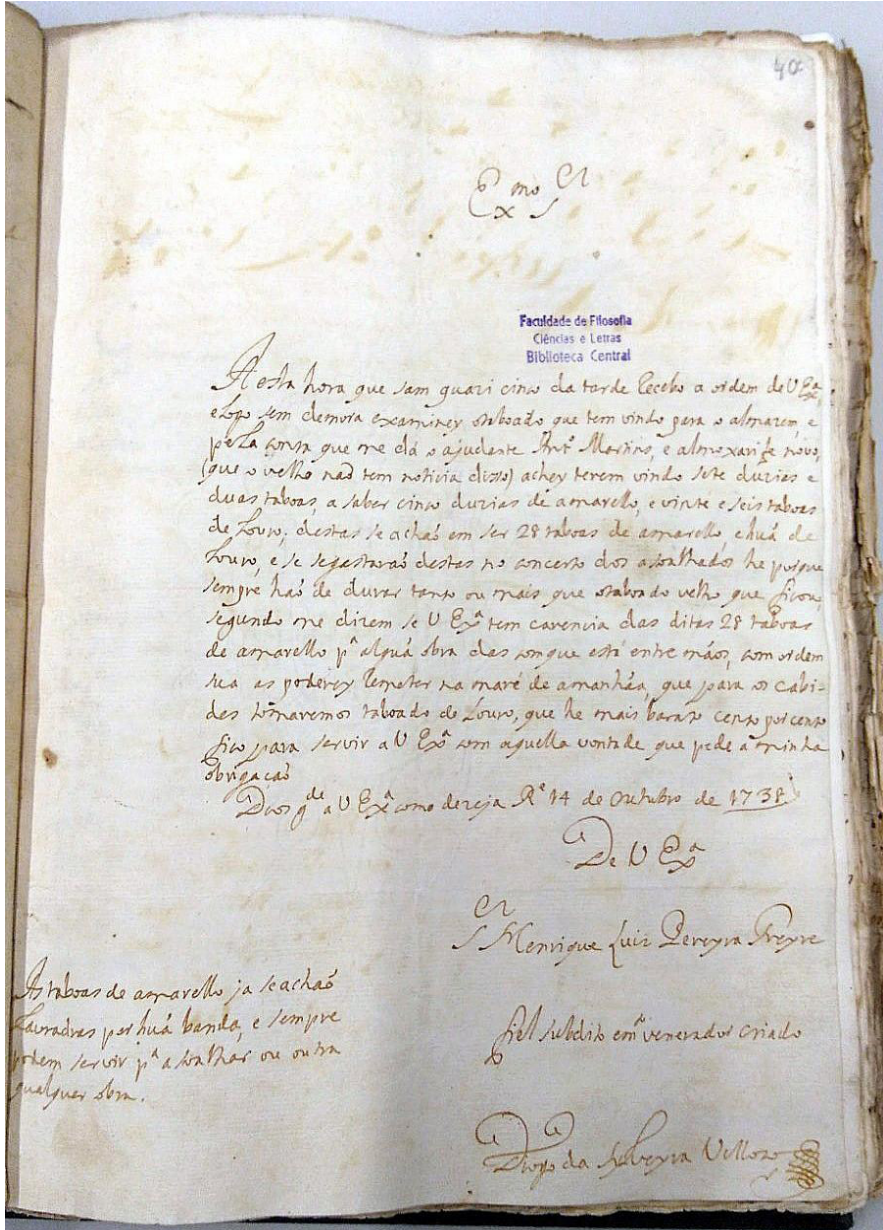 40
Ex.mo Sr
Faculdade de Filosofia
Ciências e Letras
Biblioteca Central
A esta hora que sam quazi cinco da tarde Recebo a ordem de V Exª,
e logo sem demora examiney otaboado que tem vindo para o almazem, e
pela conta que me dá o ajudante Antº Martins, e almoxarife novo,
(que o velho naõ tem noticia disso) achey terem vindo sete duzias e
duas taboas, a saber cinco duzias de amarello, e vinte e seis taboas
de Louro; destas se achaõ em ser 28 taboas de amarello, e huã de
Louro, e se se gastaraõ destas no concerto dos asoalhados he porque
sempre haõ de durar tanto ou mais que otaboado velho que ficou,
segundo me dizem se V Exª tem carencia das ditas 28 taboas
de amarello pª alguã obra das com que está entre mãos, com ordem
sua as poderey Remeter na maré de amanhãa, que para os cabi-
des tomaremos taboado de Louro, que he mais barato cento por cento
fico para servir a V Exª com aquella vontade que pede a minha
obrigaçaõ
Deos gde a V Exª como dezeja Rº 14 de Outubro de 1738
De V Exª
Sr Henrique Luis Pereyra Freyre
As taboas de amarello ja se achaõ
Lauradas por huã banda, e sempre
podem servir pª asoalhar ou outra
qualquer obra.
fiel subdito emº venerador criado
Diogo da Sylveyra Vellozo